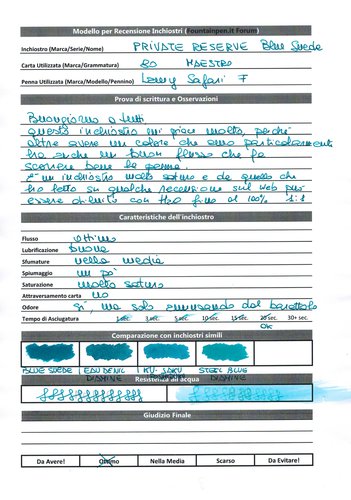 Modello per Recensione Inchiostri (Fountainpen.it Forum)
Inchiostro (Marca/Serie/Nome) PRIVATE RESERVE Blue Suede
Carta Utilizzata (Marca/Grammatura) 80 MAESTRO
Penna Utilizzata (Marca/Modello/Pennino) Lamy Safari F
Prova di scrittura e Osservazioni
Buongiorno a tutti,
questo inchiostro mi piace molto, perché
oltre avere un colore che amo particolarmente
ha anche un buon flusso che fa
scorrere bene la penna.
E' un inchiostro molto saturo e da quello che
ho letto su qualche recensione sul web può
essere diluito con H2O fino al 100% 1:1
Caratteristiche dell'inchiostro
Flusso ottimo
Lubrificazione buona
Sfumature nella media
Spiumaggio un pò
Saturazione molto saturo
Attraversamento carta no
Odore sì, ma solo annusando dal barattolo
Tempo di Asciugatura 1 sec. 5 sec. 10 sec. 15 sec. 20 sec. 30+ sec.
OK
Comparazione con inchiostri simili
BLUE SUEDE
DIAMINE
STEEL BLUE
DIAMINE
Resistenza all'acqua
Giudizio Finale
Da Avere! Ottimo Nella Media Scarso Da Evitare!